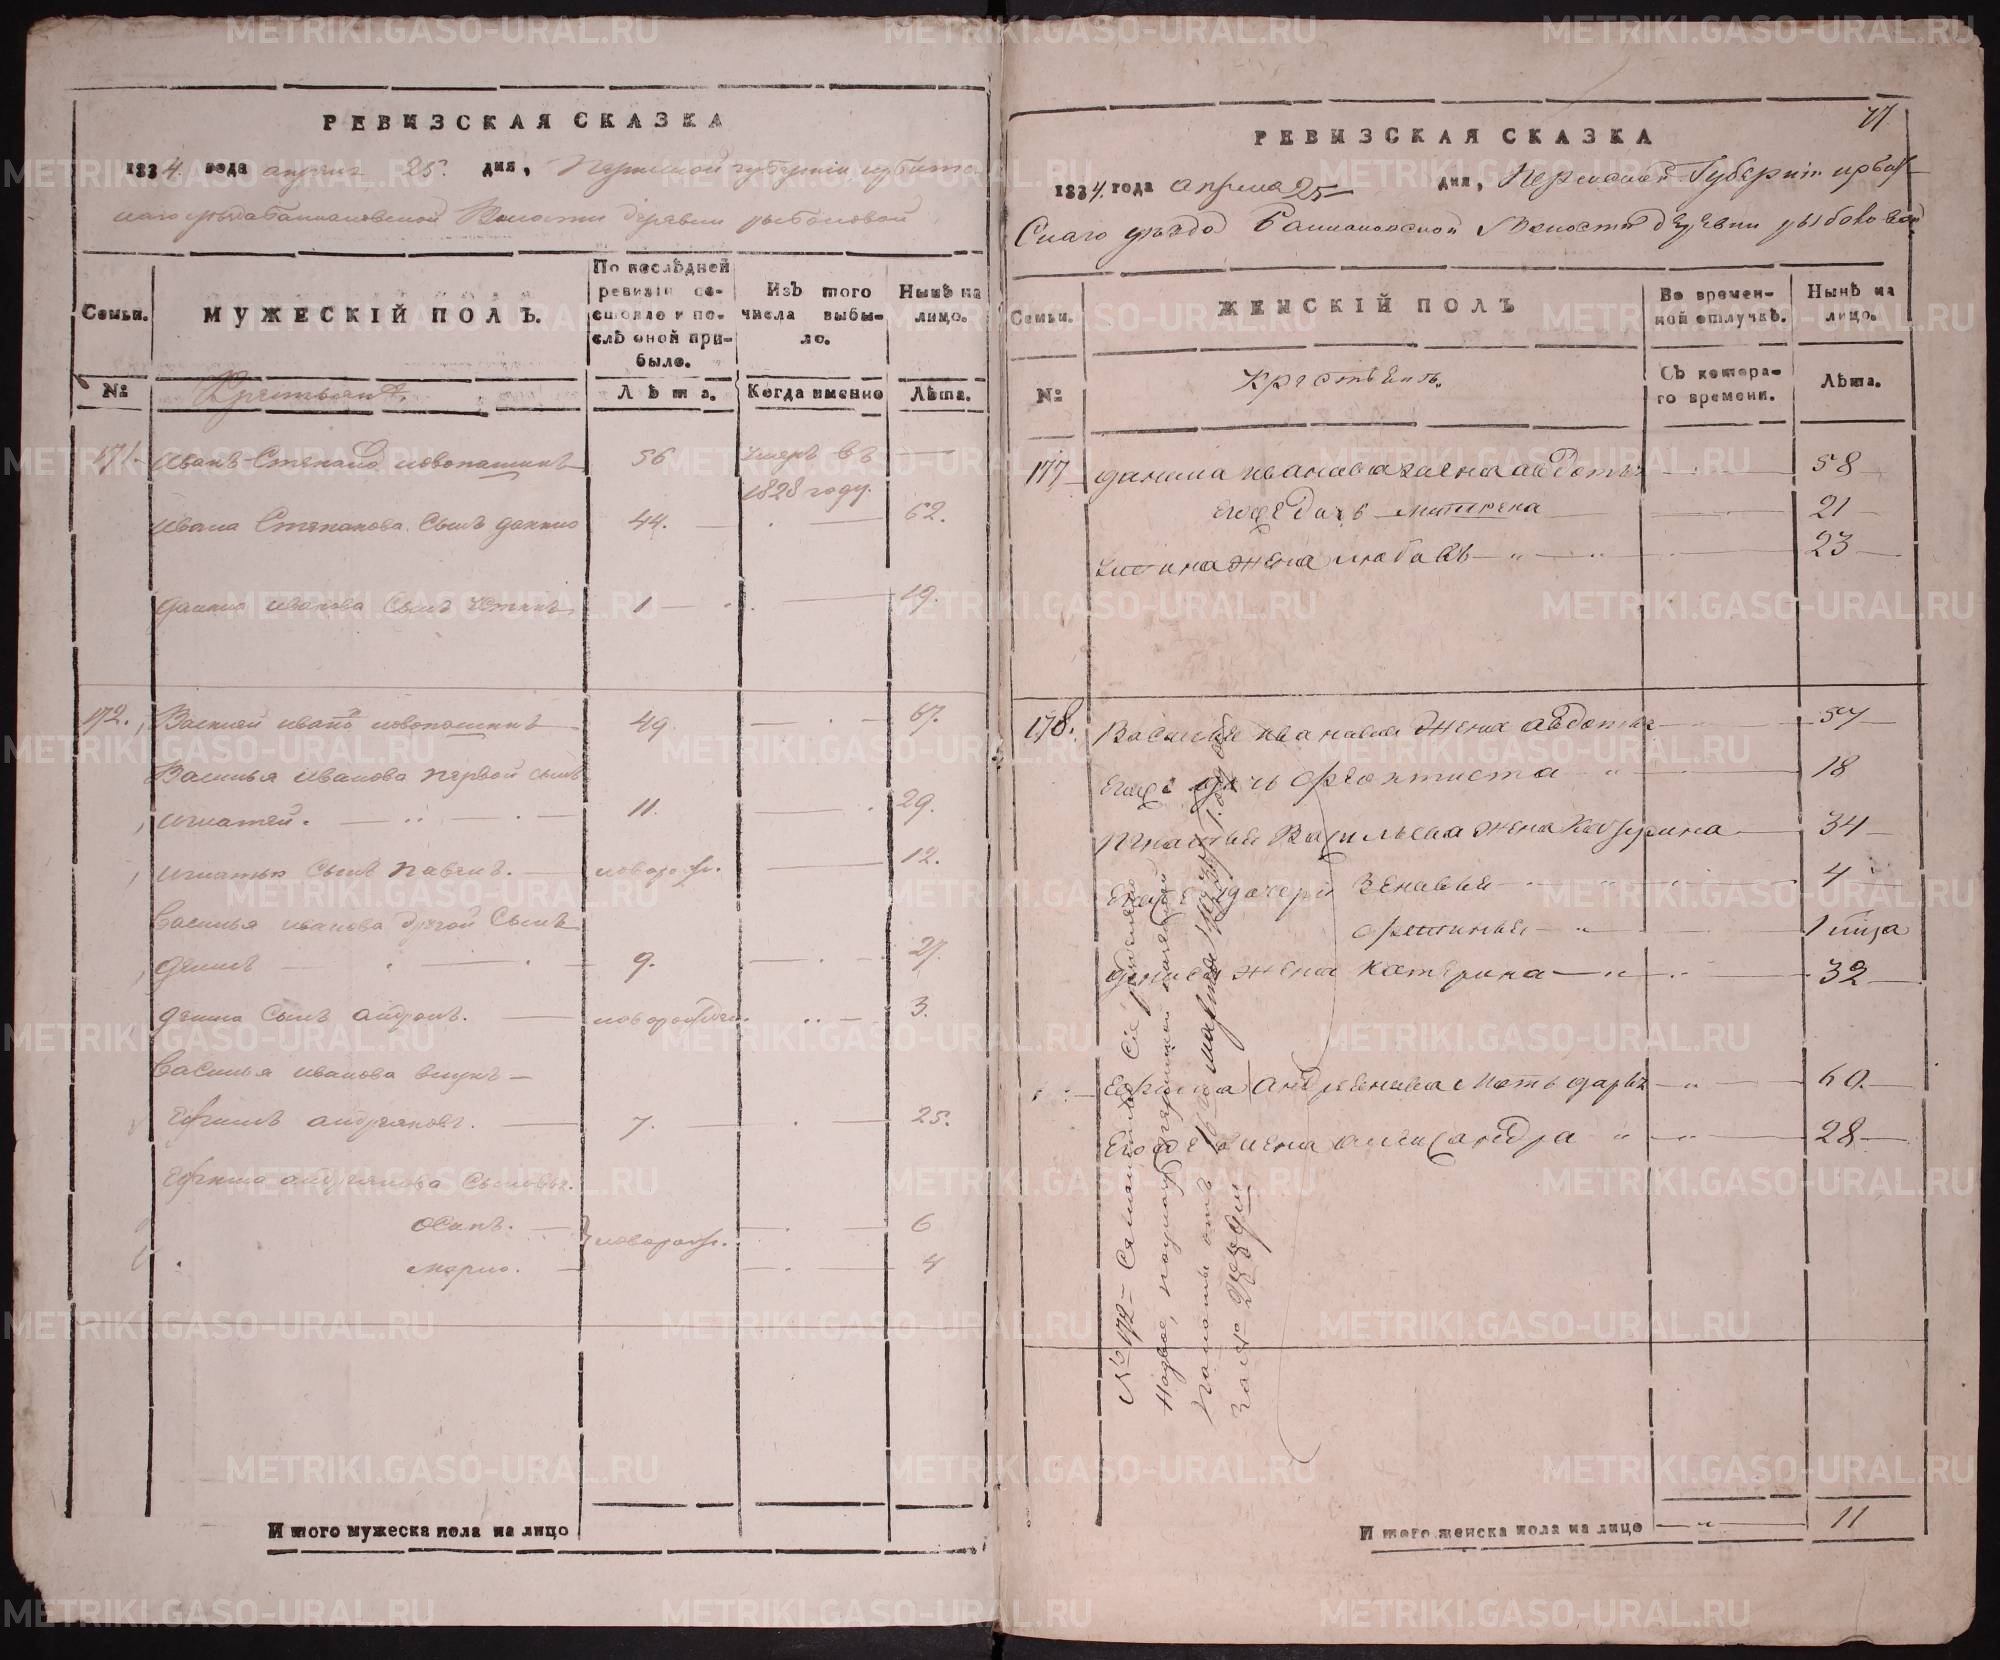 РЕВИЗСКАЯ СКАЗКА
1834. года апреля 25. дня, Пермской губернии ирбитс
каго уезда Волости деревни рыбаковой
Семьи.
МУЖЕСКІЙ ПОЛЪ.
По послѣдней ревизіи состояло и послѣ оной прибыло.
Изъ того числа выбыло.
Нынѣ на лицо.
№
Крестьяне
Лѣта.
Когда именно
Лѣта.
171. Иванъ Степановъ новопашинъ 56 умеръ въ —
1828 году.
Ивана Степанова Сынъ данило 44. — 62.
данило иванова Сынъ Устинъ 1 — 19.
172. Василей ивановъ новопашинъ 49. — 67.
Василья иванова первой сынъ
игнатей. 11. — 29.
игнатья Сынъ павелъ. новорож. — 12.
Василья иванова другой Сынъ
денисъ — 9. — 27.
дениса Сынъ андронъ. новорожден. — 3.
Василья иванова внукъ —
Ефимъ андреяновъ. 7. — 25.
Ефима андреянова Сыновья.
Осипъ. новорож. — 6
марко. — 4
Итого мужеска пола на лицо
РЕВИЗСКАЯ СКАЗКА
1834. года апреля 25 дня, Пермской Губерніи ирбит
Скаго уезда Волости деревни рыбаковой
Семьи.
ЖЕНСКІЙ ПОЛЪ
Во временной отлучкѣ.
Нынѣ на лицо.
№
Крестьянъ.
Съ котораго времени.
Лѣта.
177 данила иванова жена авдотья — 58
Его же дочь матрена — 21
устина жена любовь — 23
178. Василья иванова жена авдотья — 57
Его же дочь феоктиста — 18
игнатья Васильева жена Катерина — 34
Его же дочери Зеновья — 4
— 1 года
дениса жена катерина — 32
Ефима Андреянова мать дарья — 60.
Его же жена александра — 28
№ 172 Семейство Сіе разделено
Надвое,
отъ 16го марта 1837 года
за № 2369м
Итого женска пола на лицо — 11